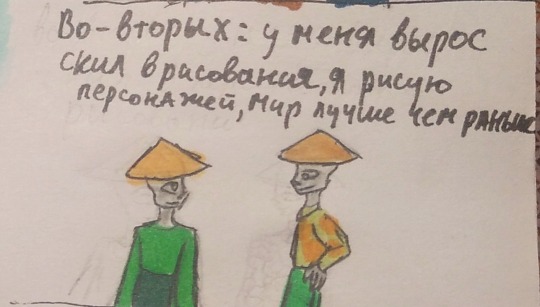 Во-вторых: у меня вырос
скил в рисования, я рисую
персонажей, мир лучше чем раньше